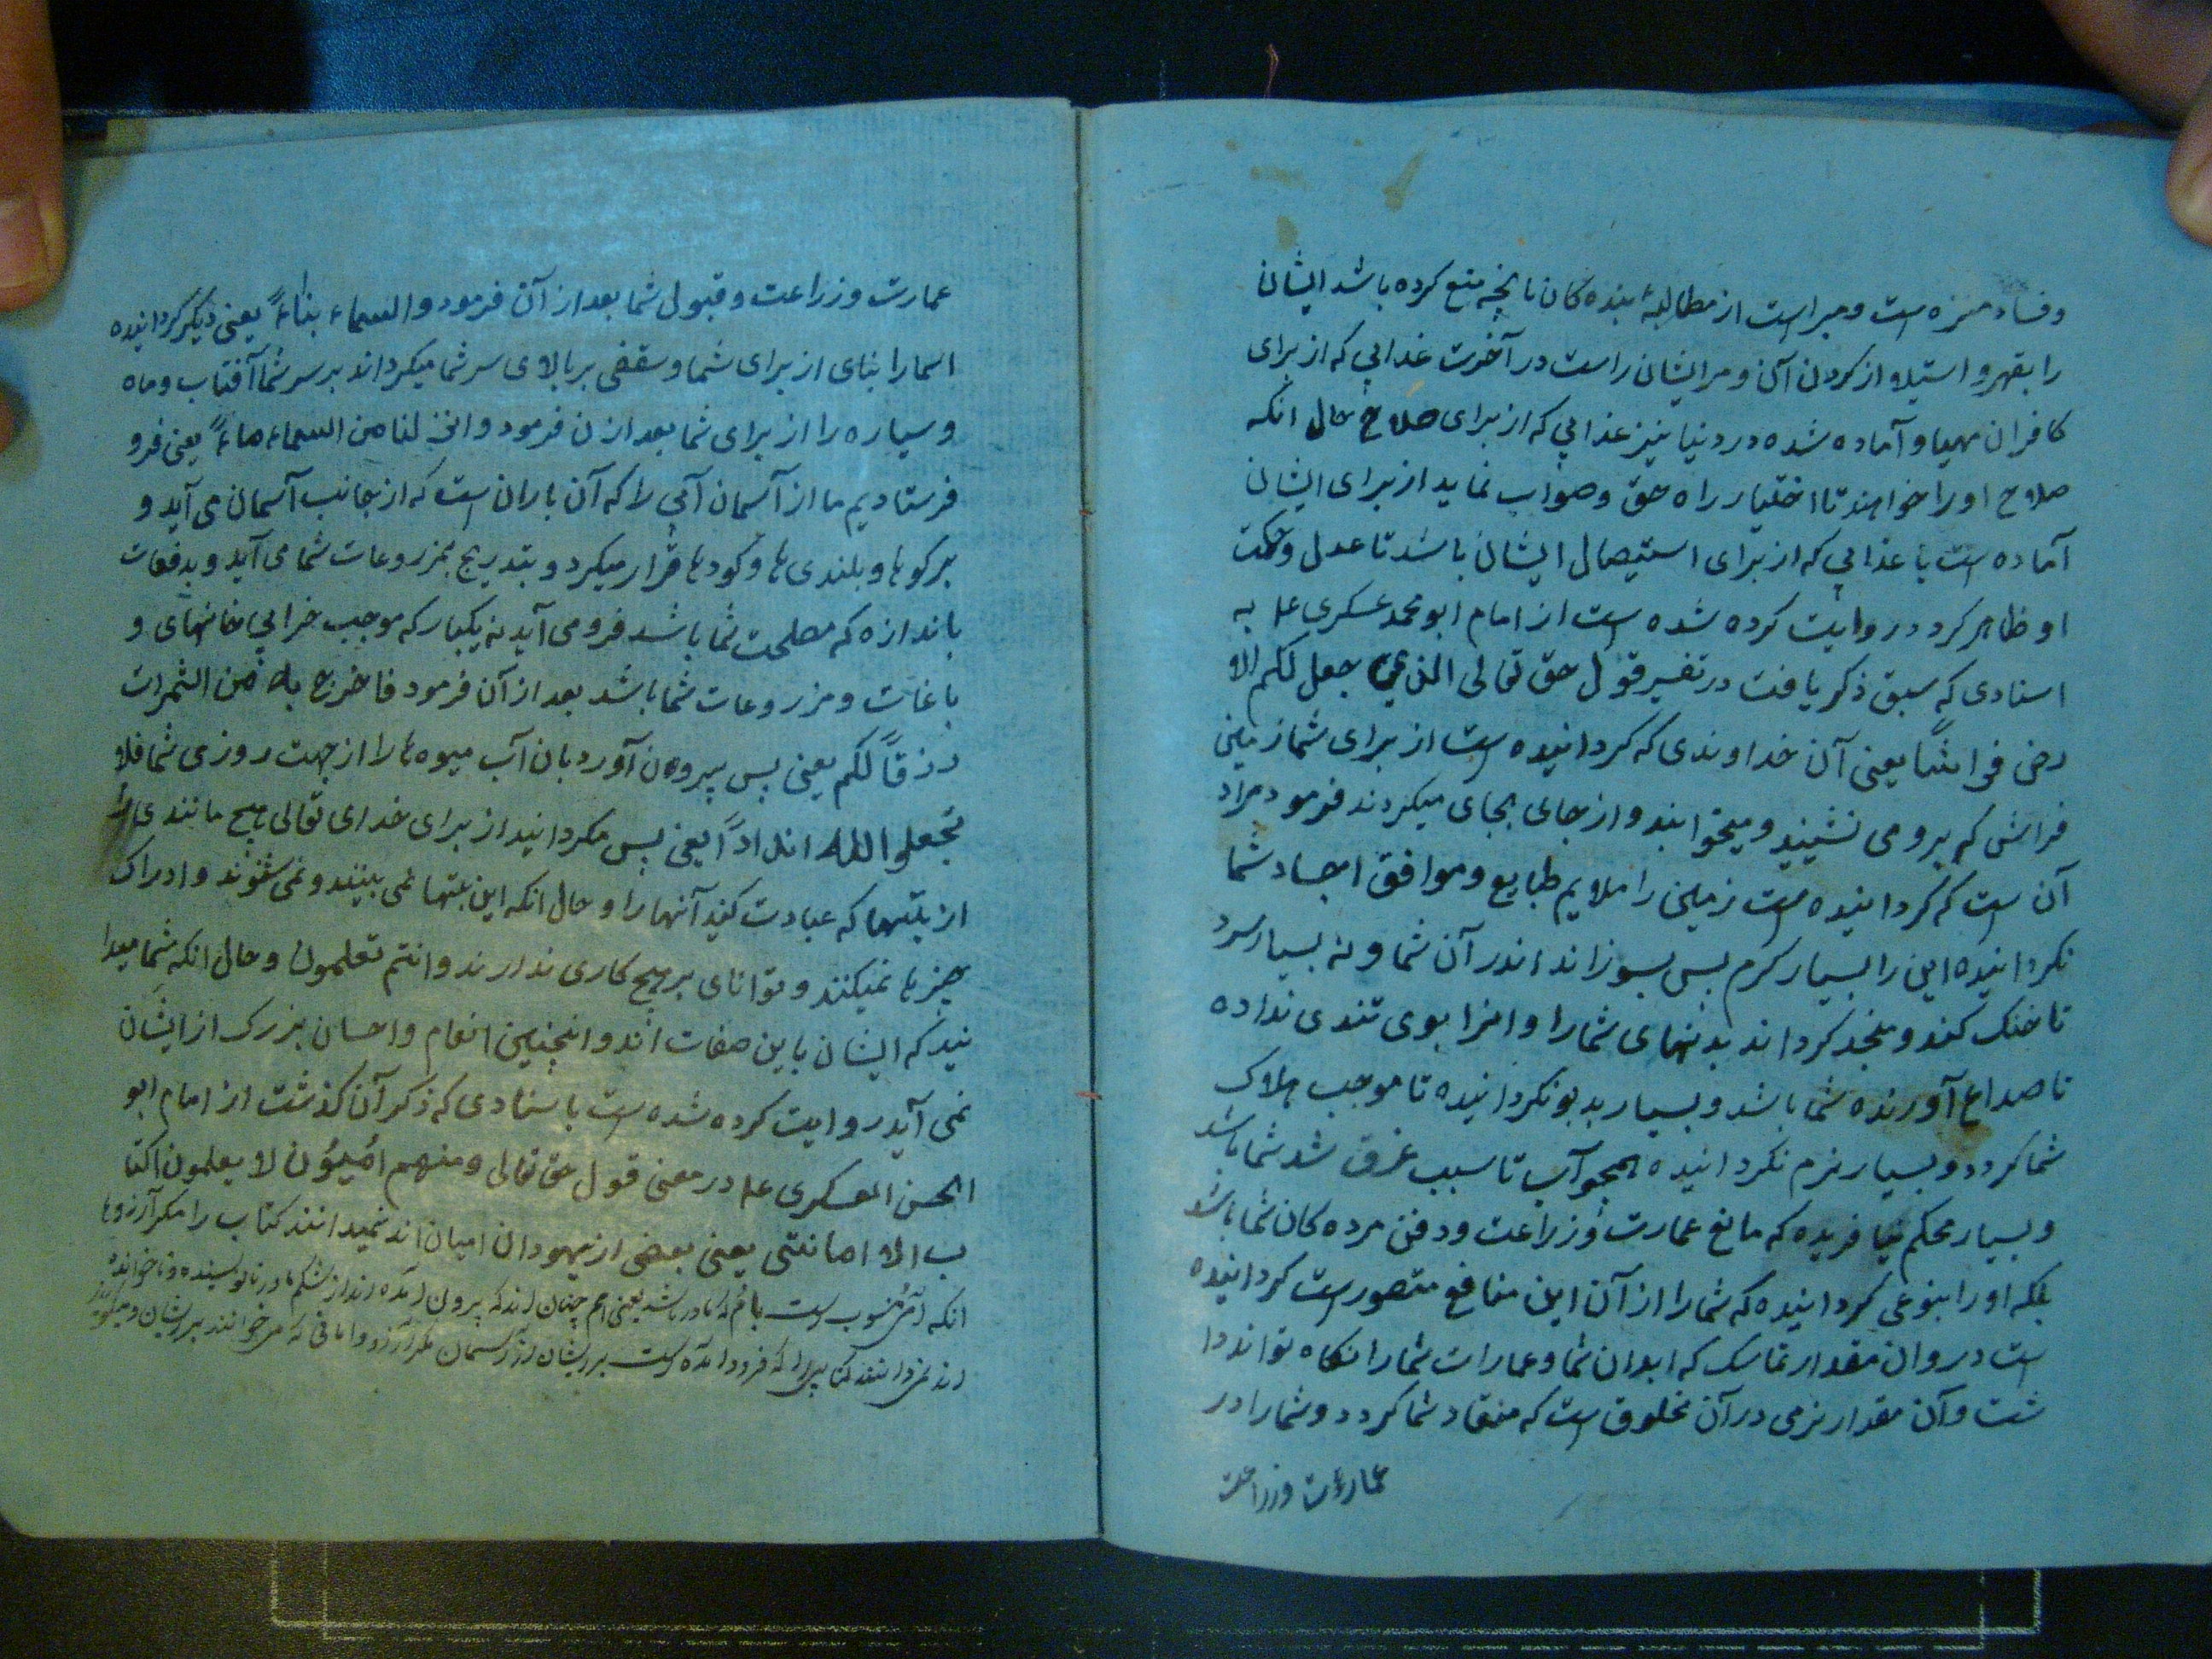 وفساد منزه است ومبراست از مطالبهٔ بنده کان تا بخیه منع کرده باشد ایشان
را بقهر و استیلا از کردن آن و مر ایشان راست در آخرت عذابی که از برای
کافران مهیا و آماده شده در دنیا نیز عذابی که از برای صلاح حال انکه
صلاح او را خواهند تا اختیار راه حق وصواب نماید از برای ایشان
آماده است یا عذابی که از برای استیصال ایشان باشد تا عدل وحکمت
او ظاهر کرد در روایت کرده شده است از امام ابو محمد عسکری علیه به
اسنادی که سبق ذکر یافت در تفسیر قول حق تعالی الذی جعل لکم الا
رض فراشًا یعنی آن خداوندی که کردانیده است از برای شما زمینی
فراشی که برو می نشیند و میخوابند و از جای بجای میکردند فرمود مراد
آن است که کردانیده است زمین را ملایم طبایع وموافق اجساد شما
نکردانیده این را بسیار کرم پس بسوزاند اندر آن شما و نه بسیار سرد
تا خنک کند و منجد کرداند بدنهای شما را و انرا بوی تندی نداده
تا صداع آورنده شما باشد و بسیار بدبو نکردانیده تا موجب هلاک
شما کردد و بسیار نرم نکردانیده همچو آب تا سبب غرق شد شما باشد
وبسیار محکم نیافریده که مانع عمارت وزراعت ودفن مرده کان شما باشد
بلکه او را بنوعی کردانیده که شما را از آن این منافع متصور است کردانیده
است در وان مقدار تماسک که ابدان شما وعمارات شما را نکاه تواند دا
شت وآن مقدار نرمی در آن مخلوق است که منقاد شما کردد و شما را در
عمارت وزراعت
عمارت وزراعت وقبول شما بعد از آن فرمود والسماء بناءً یعنی دیکر کردانیده
اسما را بنای از برای شما وسقفی بر بالای سر شما میکرداند بر سر شما آفتاب وماه
وسیاره را از برای شما بعد ازن فرمود وانزلنا من السماء ماءً یعنی فرو
فرستادیم ما از آسمان آبی را که آن باران است که از جانب آسمان می آید و
بر کوها و بلندی ها و کودها قرار میکرد و بتدریج بمزروعات شما می آید و بدفعات
باندازه که مصلحت شما باشد فرو می آید نه یکبار که موجب خرابی خانهای و
باغات ومزروعات شما باشد بعد از آن فرمود فاخرج به من الثمرات
رزقاً لکم یعنی پس بیرون آورد بان آب میوه ها را از جهت روزی شما فلا
تجعلوا لله انداداً یعنی پس مکردانید از برای خدای تعالی هیچ مانندی
از بتها که عبادت کنید آنها را و حال انکه این بتها نمی بینند و نمی شنوند و ادراک
چیزها نمیکنند و توانای بر هیچ کاری ندارند وانتم تعلمون وحال انکه شما میدا
نید که ایشان باین صفات اند و اینچنین انعام واحسان بزرک از ایشان
نمی آید روایت کرده شده است باسنادی که ذکر آن کذشت از امام ابو
الحسن العسکری علیه در معنی قول حق تعالی ومنهم امیون لا یعلمون الکتا
ب الا امانتی یعنی بعضی از یهودان امیان اند نمیدانند کتاب را مکر آرزوها
انکه امی منسوب است باُم که مادر باشد یعنی هم چنان اند که بیرون آمده اند از شکم مادر نانویسنده وناخوانده
اند نمیدانند کتابی را که فرود آمده است بر ایشان از آسمان مکر آرزو وامانی که میخوانند بر ایشان ومیکویند